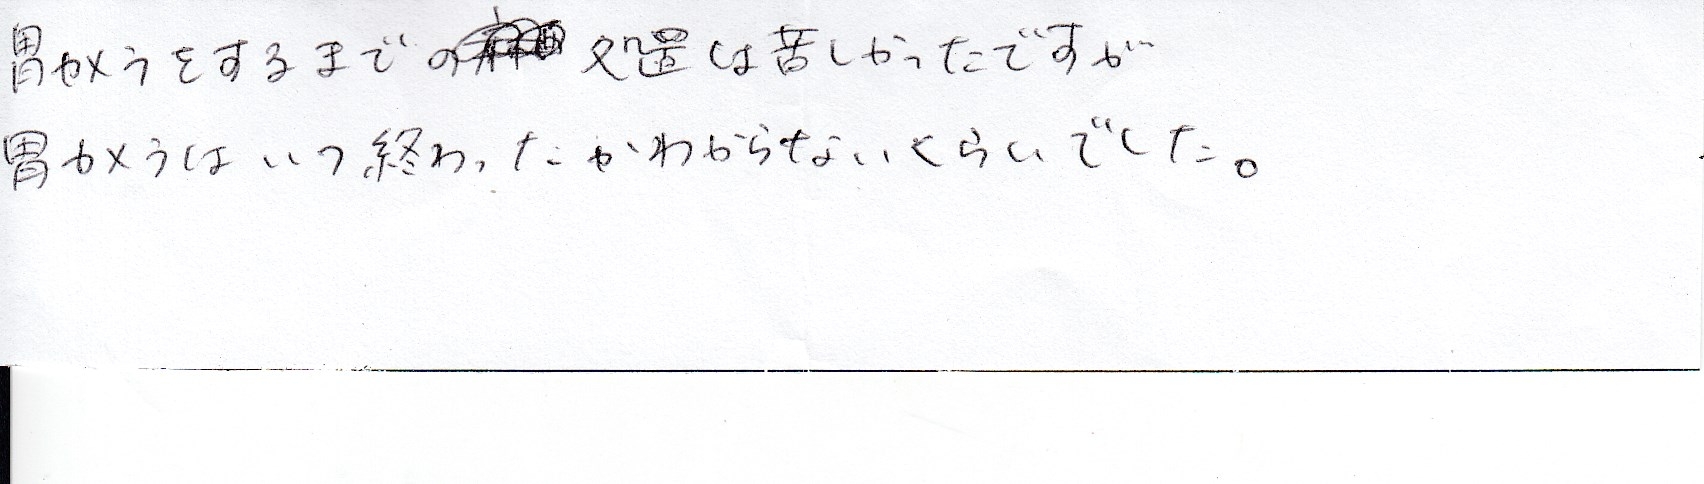 胃カメラをするまでの処置は苦しかったですが
胃カメラはいつ終わったかわからないくらいでした。